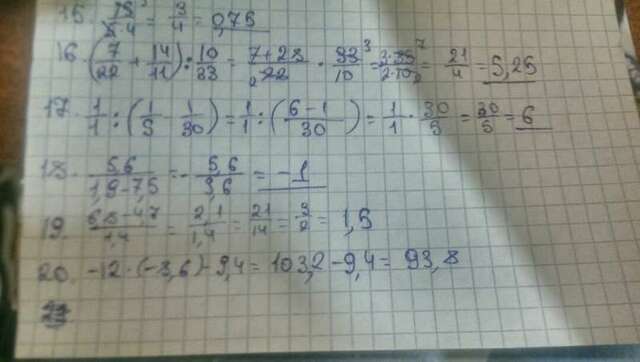 15. = 3/4 = 0,75
16. (7/22 + 14/11) : 10/33 = 7+28/22 · 33/10 = 3·35/2·10 = 21/4 = 5,25
17. 1/1 : (1/5 - 1/30) = 1/1 : (6-1/30) = 1/1 · 30/5 = 30/5 = 6
18. 5,6/1,9-7,5 = - 5,6/5,6 = -1
19. 6,8-4,7/1,4 = 2,1/1,4 = 21/14 = 3/2 = 1,5
20. -12·(-8,6)-9,4 = 103,2-9,4 = 93,8